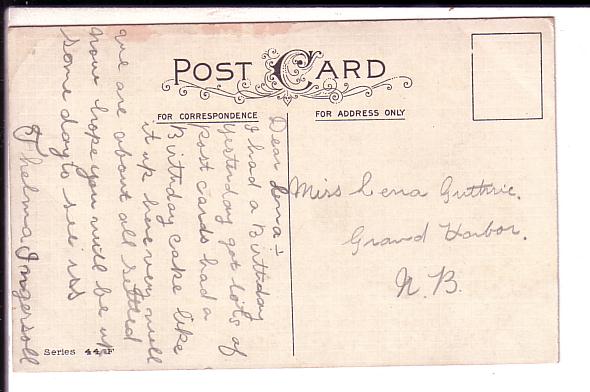 POST CARD
FOR CORRESPONDENCE
FOR ADDRESS ONLY
Dear Lena:-
I had a Birthday
Yesterday got lots of
post cards had a
Birthday cake like
it up here very well
we are about all settled
now hope you will be up
some day to see us
Thelma Ingersoll
Miss Lena Guthrie.
Grand Harbor.
N.B.
Series 44 F